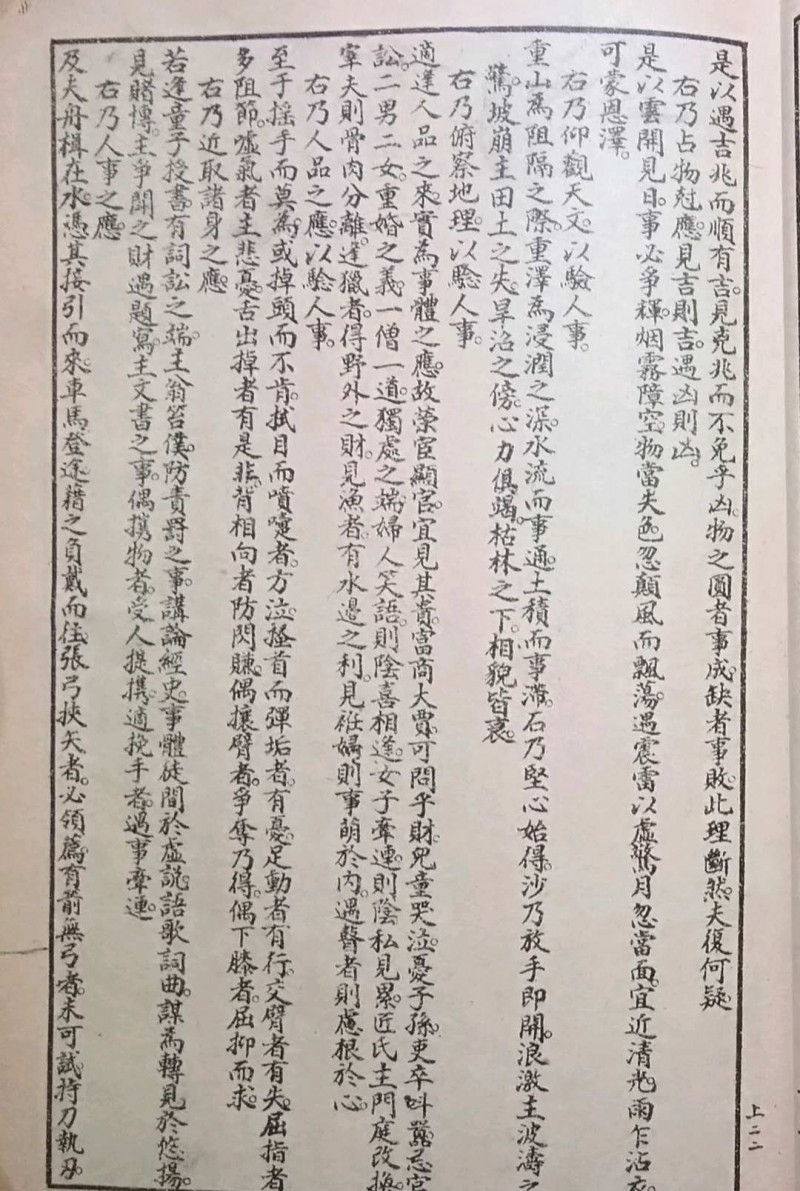 是以遇吉兆而順有吉。見克兆而不免乎凶。物之圓者事成。缺者事敗。此理斷然。夫復何疑。
右乃占物尅應。見吉則吉。遇凶則凶。
是以雲開見日。事必爭輝。烟霧障空。物當失色。忽顛風而飄蕩。遇震雷以虛驚。月忽當面。宜近清光。雨乍沾衣。
可蒙恩澤。
右乃仰觀天文。以驗人事。
重山爲阻隔之際。重澤爲浸潤之深。水流而事通。土積而事滯。石乃堅心始得。沙乃放手即開。浪激主波濤之
驚。坡崩主田土之失。旱沼之傍。心力俱竭。枯林之下。相貌皆衰。
右乃俯察地理。以驗人事。
適逢人品之來。實爲事體之應。故榮宦顯官。宜見其貴。富商大賈。可問乎財。兒童哭泣。憂子孫。吏卒叫囂。忌官
訟。二男二女。重婚之義。一僧一道。獨處之端。婦人笑語。則陰喜相逢。女子牽連。則陰私見累。匠氏主門庭改換。
宰夫則骨肉分離。逢獵者。得野外之財。見漁者。有水邊之利。見姙婦則事萌於內。遇瞽者則慮根於心。
右乃人品之應。以驗人事。
至于搖手而莫爲。或掉頭而不肯。拭目而噴嚏者。方泣。搔首而彈垢者。有憂。足動者有行。交臂者有失。屈指者
多阻節。噓氣者主悲憂。舌出掉者有是非。背相向者防閃賺。偶攘臂者。爭奪乃得。偶下膝者。屈抑而求。
右乃近取諸身之應。
若逢童子授書。有詞訟之端。主翁笞僕。防責罰之事。講論經史。事體徒間於虛說。語歌詞曲。謀爲轉見於悠揚。
見賭博。主爭鬪之財。遇題寫。主文書之事。偶携物者。受人提携。適挽手者。遇事牽連。
右乃人事之應。
及夫舟楫在水。憑其接引而來。車馬登途。藉之負戴而往。張弓挾矢者。必領薦。有箭無弓者。未可試。持刀執刃。
上二二